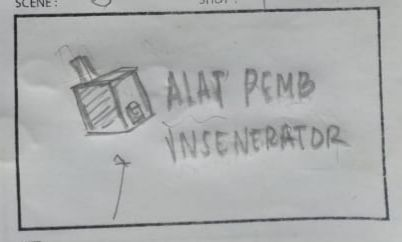 SCENE :
SHOT :
ALAT PEMB
INSENERATOR